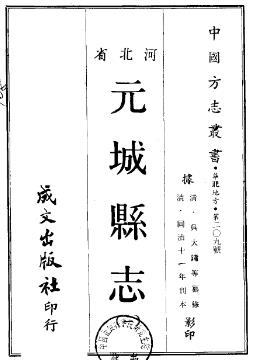 中國方志叢書・華北地方・第二〇九號
據
清・吳大鏞等纂修
清・同治十一年刊本
影印
河北省
元城縣志
成文出版社印行